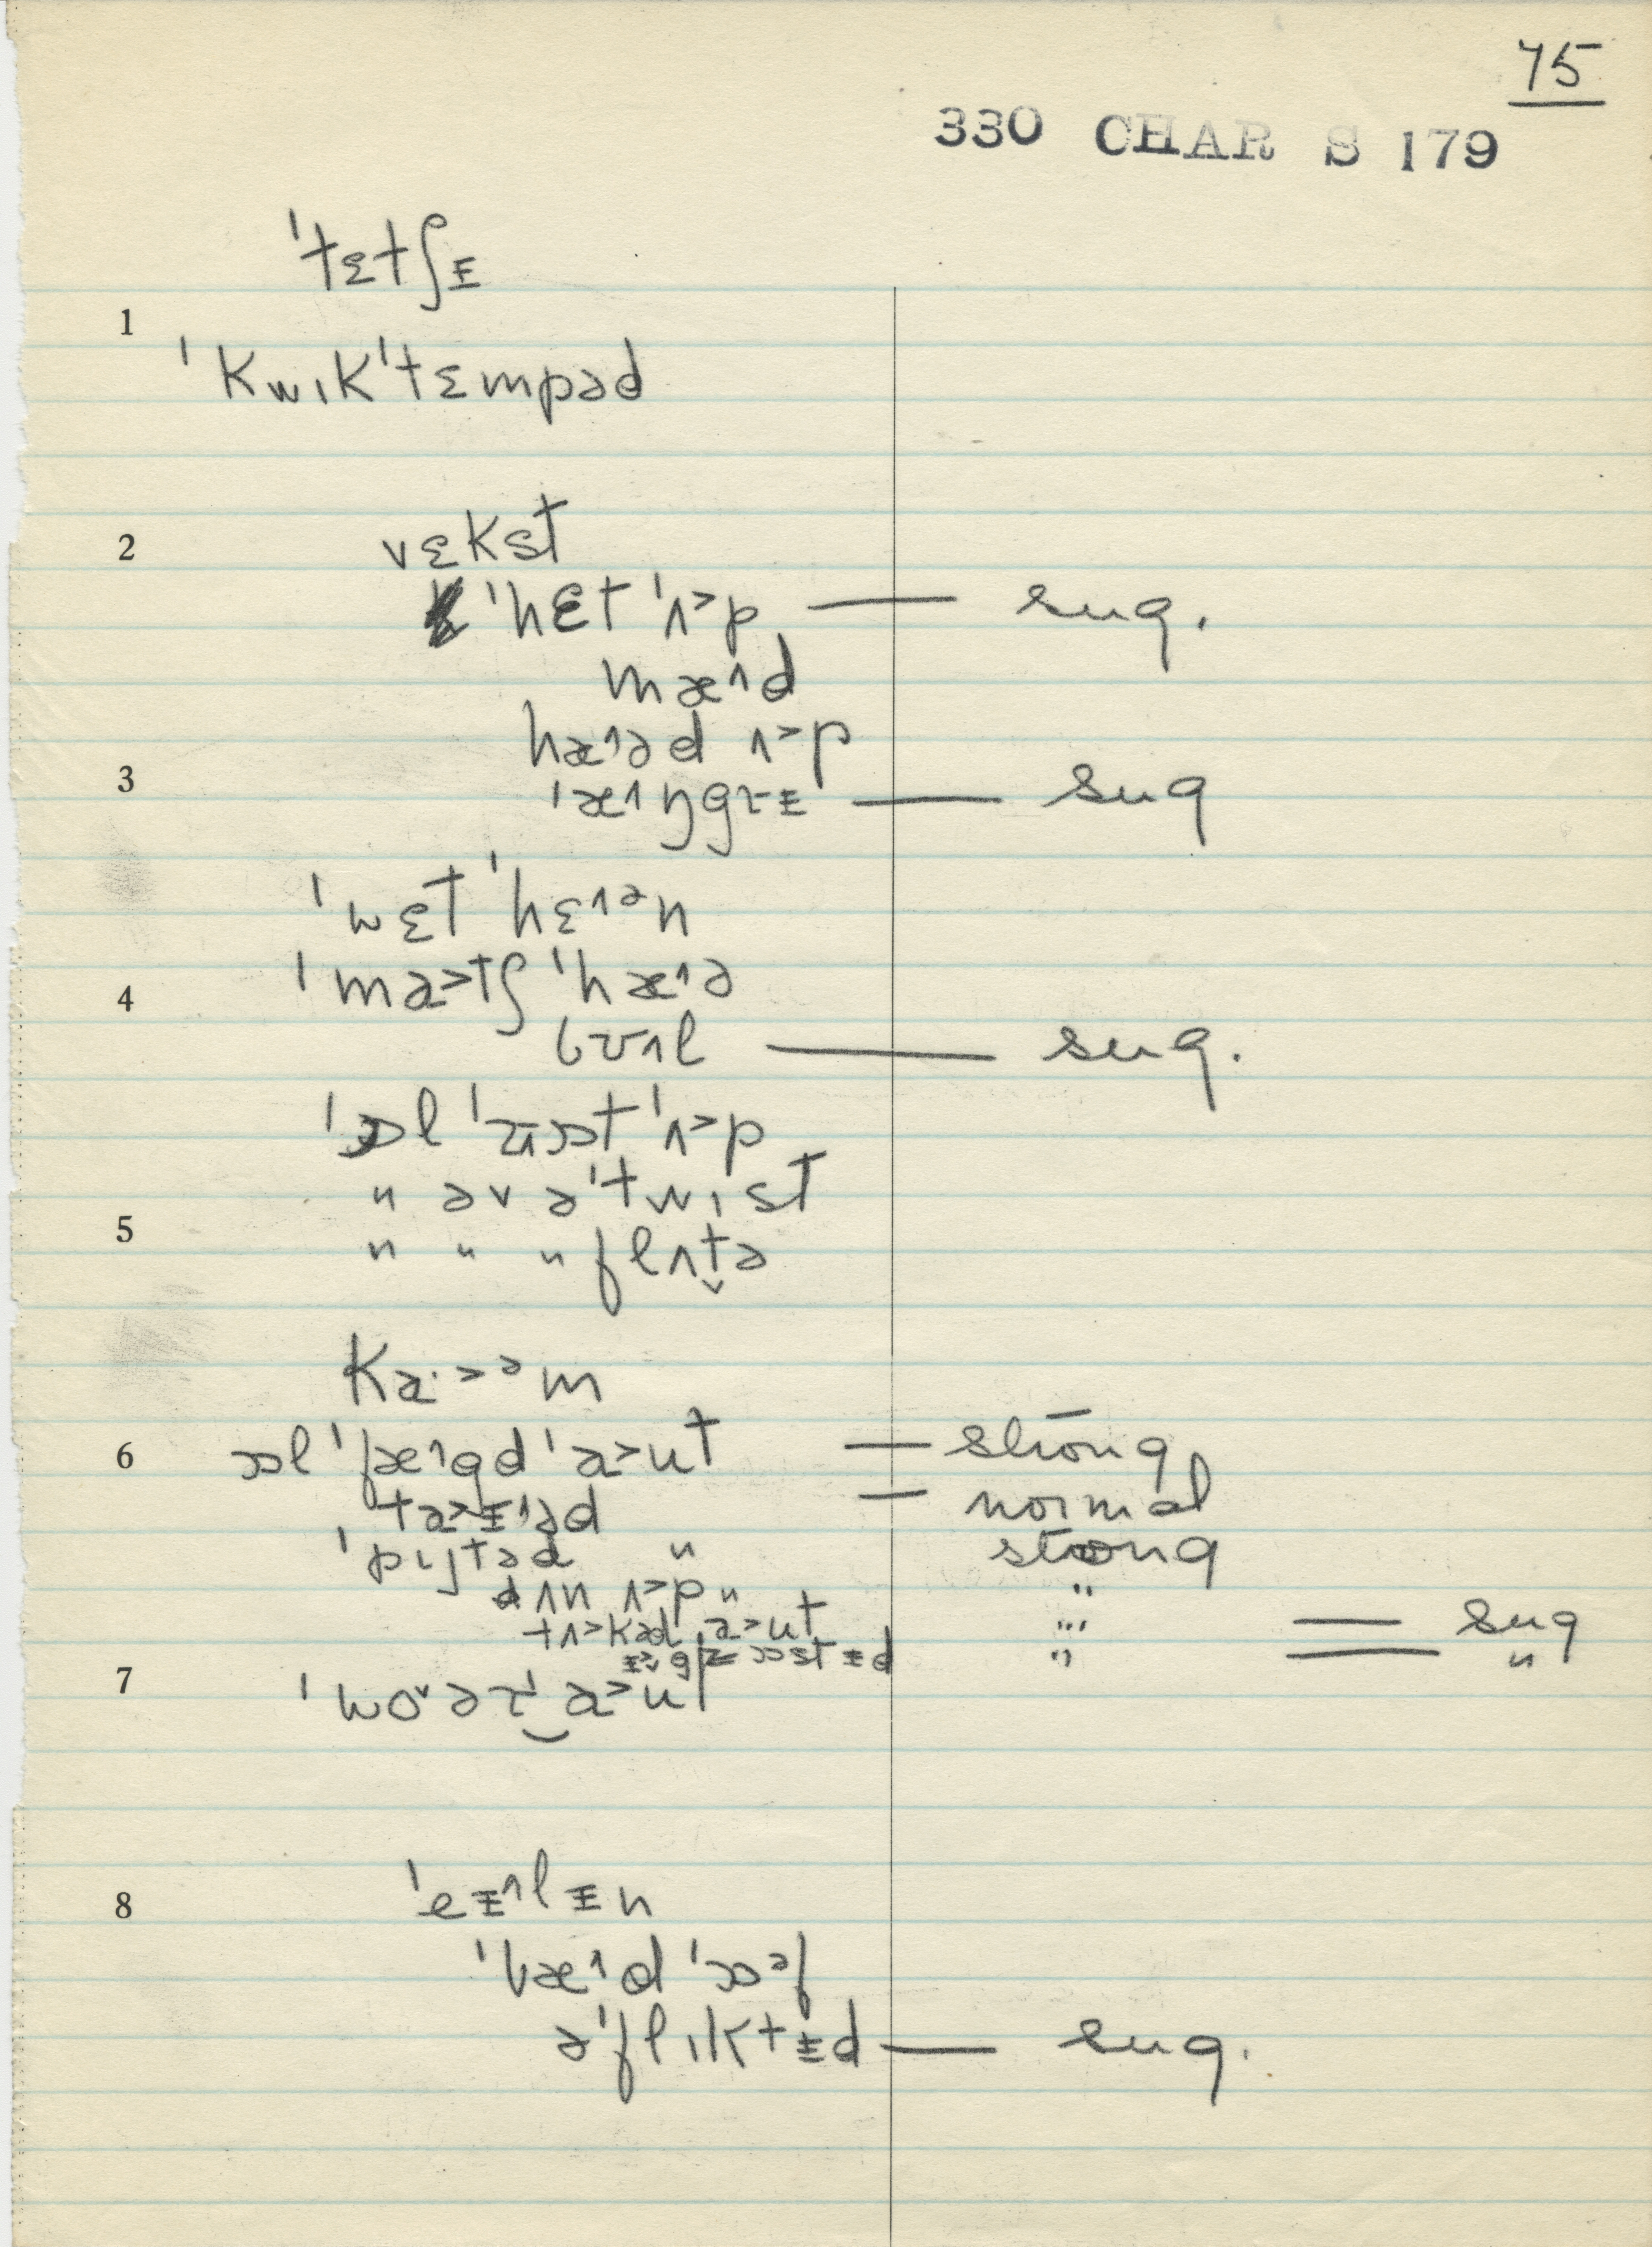 75
330 CHAR S 179
ˈtɛtʃᵻ
1
ˈkwɪkˈtɛmpəd
2 vɛkst
ˈhɛt ˈʌ˃p — sug.
mæ˄d
hæ˄əd ʌ˃p
3 ˈæ˄ŋgɚᵻ — sug
ˈwɛt ˈhɛ˄ᵊn
4 ˈma˃tʃ ˈhæ˄ə
sug.
ˈɒl ˈʌ˃p
5 〃 əv əˈtwɪst
〃 〃 〃 flʌt̬ə
ka·˃ᵊm
6 ɒl ˈfæ˄gd ˈa˃ut — strōng
ta˃ᵻ˄əd — normal
ˈpɪʃtəd 〃 strong
dʌn ʌ˃p 〃 〃
tʌ˃kəd a˃ut 〃 — sug
〃 — 〃
7 ˈwo˅əɚ‿a˃ut
8 ˈeᵻ˄lᵻn
ˈbæ˄d ˈɒᵊf
əˈflɪktᵻd — sug.